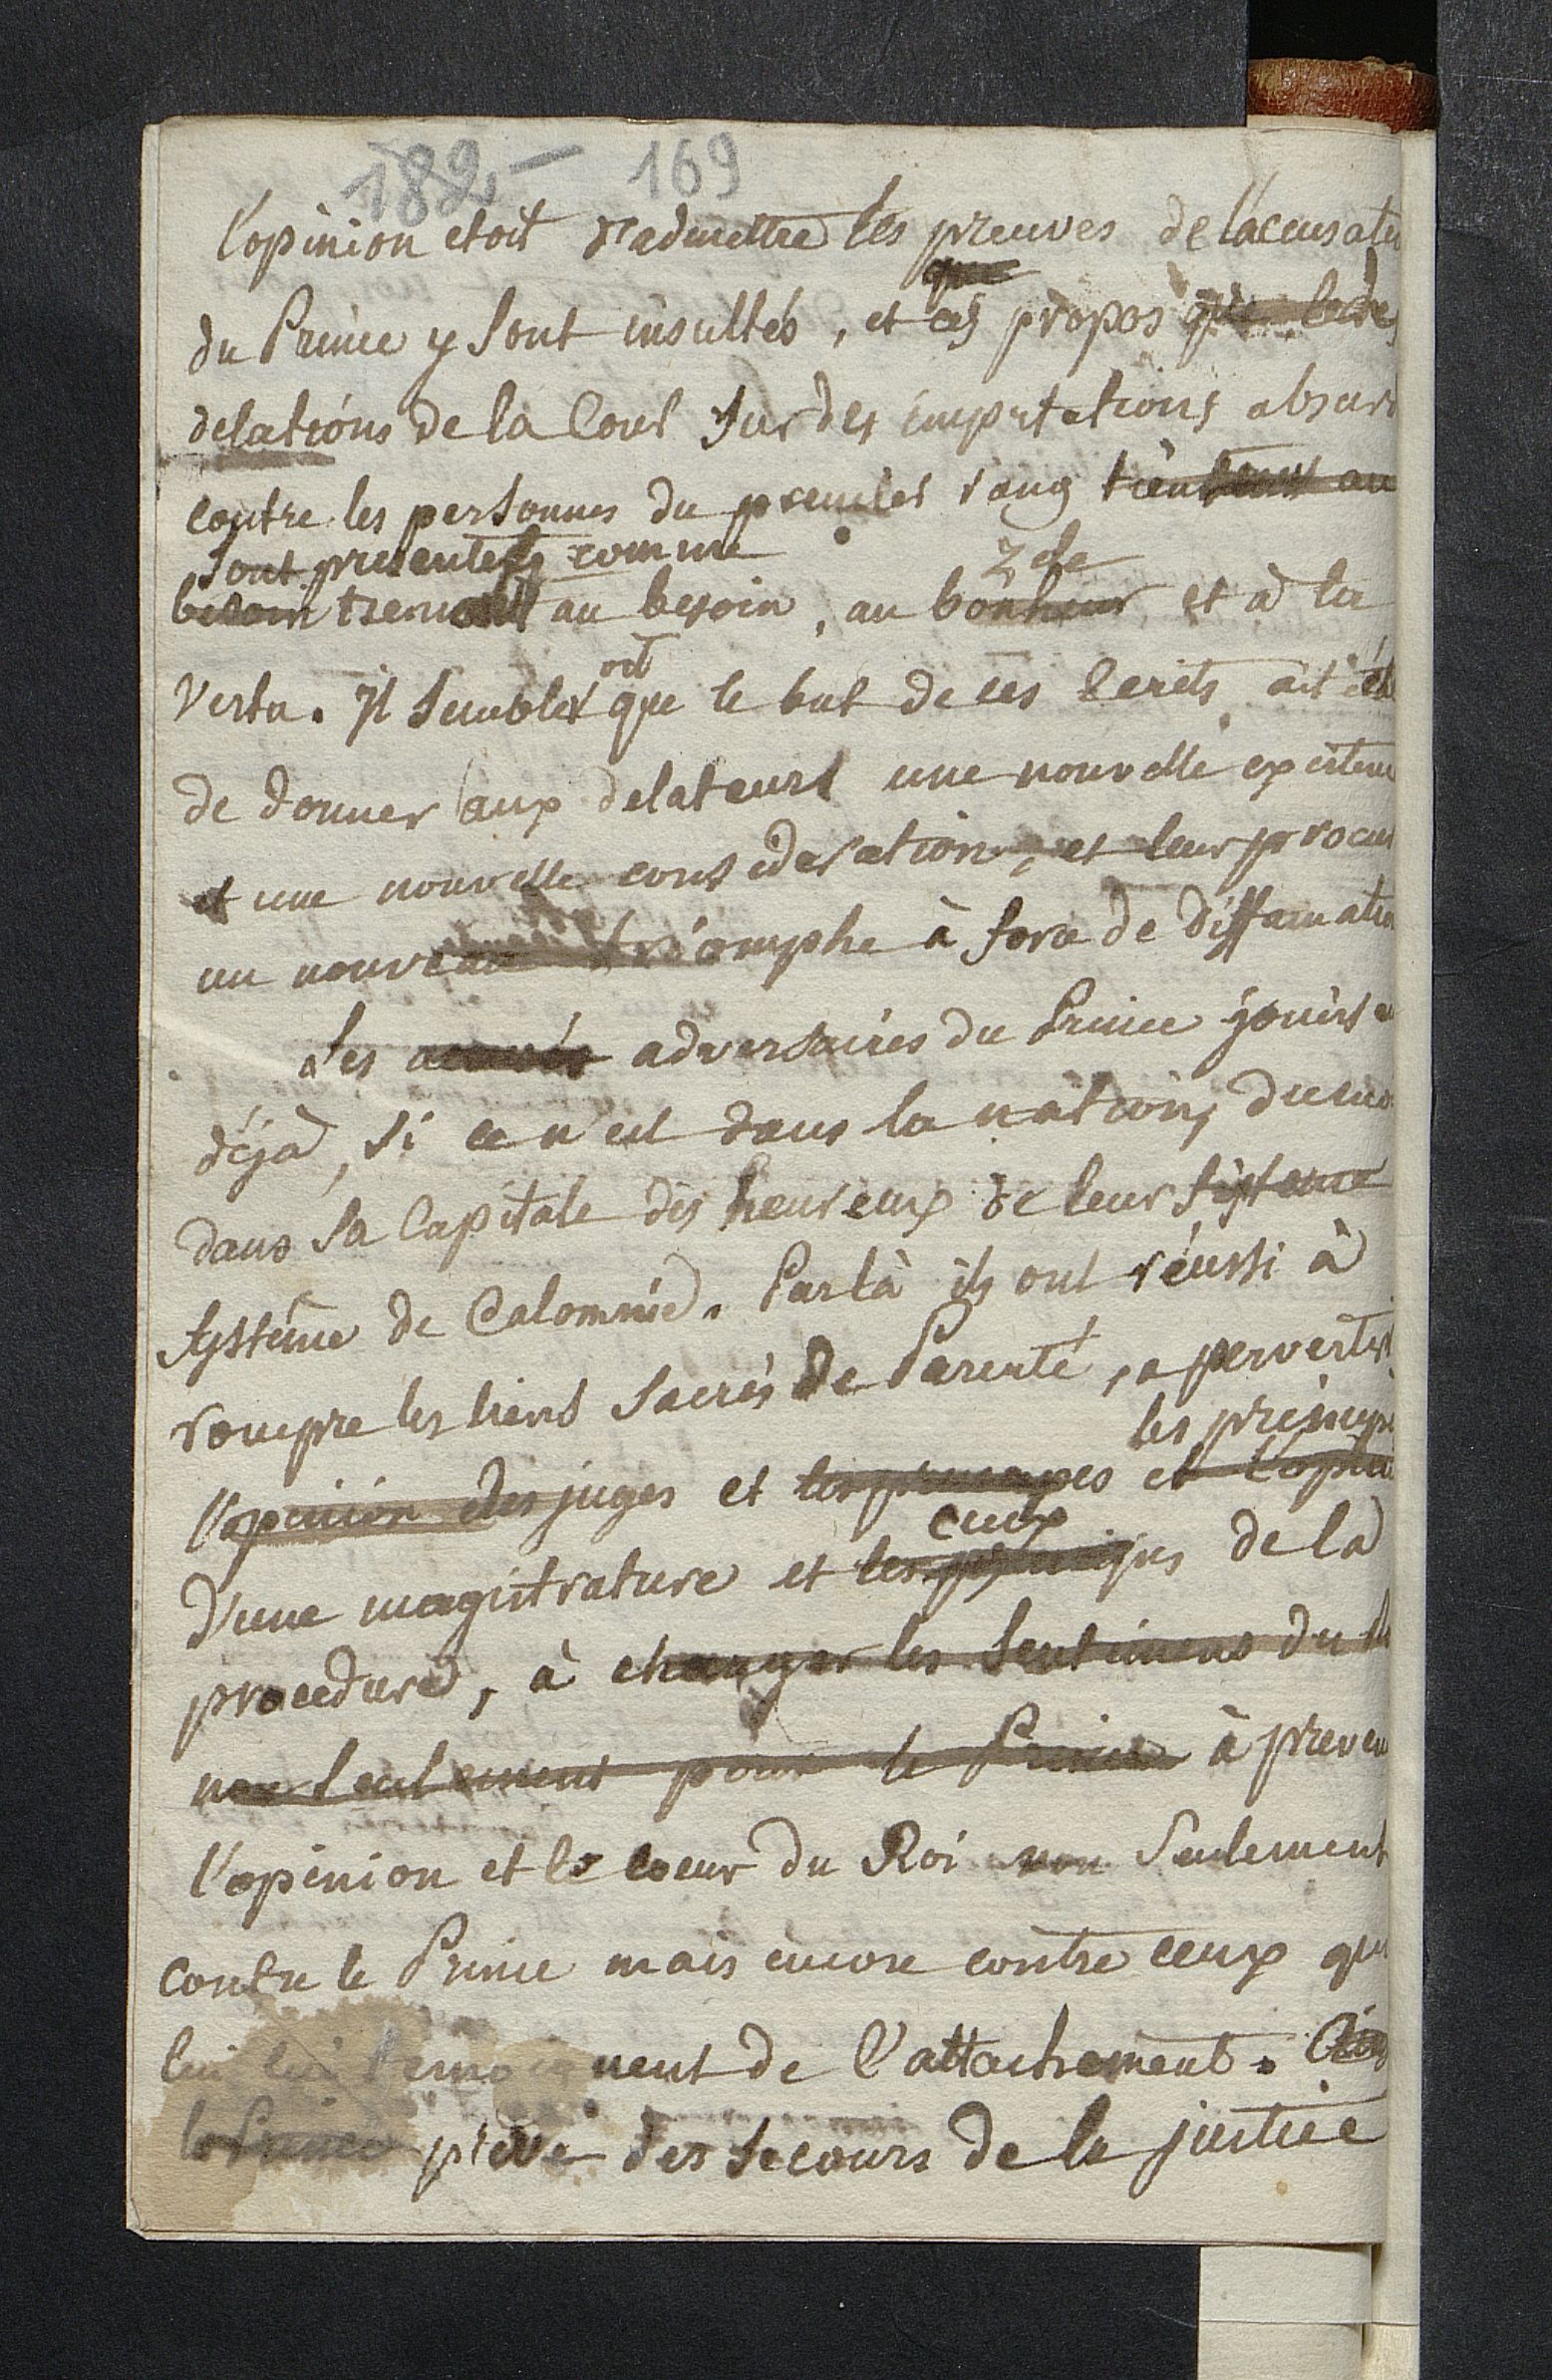 182 - 169
l'opinion etoit d'admettre les preuves de l'accusate
que
du Prince y sont insultés, et ces propos que
delations de la Cour sur des imputations absur
contre les personnes du premier rang au
sont presentés comme
zele
besoin au besoin, au bonheur et à la
oit
Vertu. Il sembler que le but de ces ecrits ait été
de donner aux delateurs une nouvelle existen
et une nouvelle consideration, et leur procu
un nouveau triomphe à force de diffamatio
Les adversaires du Prince jouis
déjà, si ce n'est dans la nation, du
dans sa Capitale des heureux de leur sisteme
système de Calomnie. Par là ils ont réussi à
rompre les liens sacrés de Parenté, a pervertir
les princip
l'opinion des juges et les principes et l'opin
ceux
d'une magistrature et les de la
procedure, à changer les sentimens du
non seulement pour le Prince à preven
l'opinion et le coeur du Roi non seulement
contre le Prince mais encore contre ceux qu
lui lui temoignent de l'attachement.
le Prince privé des secours de la justice